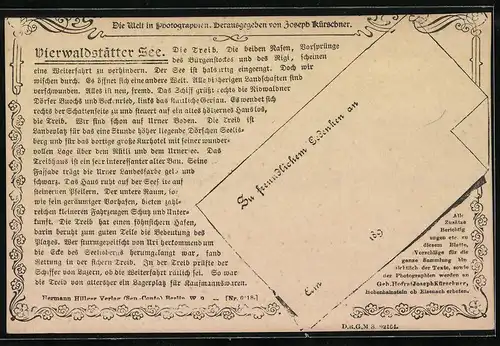 Die Welt in Photographien. Herausgegeben von Joseph Kürschner.
Vierwaldstätter See. Die Treib. Die beiden Nasen, Vorsprünge
des Bürgenstockes und des Rigi, scheinen
eine Weiterfahrt zu verhindern. Der See ist halsartig eingeengt. Doch wir
wischen durch. Es öffnet sich eine andere Welt. Alle bisherigen Landschaften sind
verschwunden. Alles ist neu, fremd. Das Schiff grüßt rechts die Nidwaldner
Dörfer Buochs und Beckenried, links das stattliche Gersau. Es wendet sich
rechts der Schattenseite zu und steuert auf ein altes hölzernes Haus los,
die Treib. Wir sind schon auf Urner Boden. Die Treib ist
Landeplatz für das eine Stunde höher liegende Dörfchen Seelis-
berg und für das dortige große Kurhotel mit seiner wunder-
vollen Lage über dem Rütli und dem Urnersee. Das
Treibhaus ist ein sehr interessanter alter Bau. Seine
Fassade trägt die Urner Landesfarbe gelb und
schwarz. Das Haus ruht auf der Seeseite auf
steinernen Pfeilern. Der untere Raum, so-
wie sein geräumiger Vorhafen, bieten zahl-
reichen kleineren Fahrzeugen Schutz und Unter-
kunft. Die Treib hat einen föhnsichern Hafen,
darin beruht zum guten Teile die Bedeutung des
Platzes. Wer sturmgepeitscht von Uri herkommend um
die Ecke des Seelisbergs herumgelangt war, fand
Rettung in der sichern Treib. In der Treib prüfte der
Schiffer von Luzern, ob die Weiterfahrt rätlich sei. So war
die Treib von altersher ein Lagerplatz für Kaufmannswaren.
Hermann Hillger Verlag (Sep.-Conto) Berlin, W. 9. — [Nr.
Zu freundlichem Gedenken an
189
Ein
Alle
Zusätze
Berichtig
ungen etc. zu
diesem Blatte,
Vorschläge für die
ganze Sammlung hin-
sichtlich der Texte, sowie
der Photographien werden an
Geh. Hofrat Joseph Kürschner,
Hohenhainstein ob Eisenach erbeten.
D.R.G.M.S.